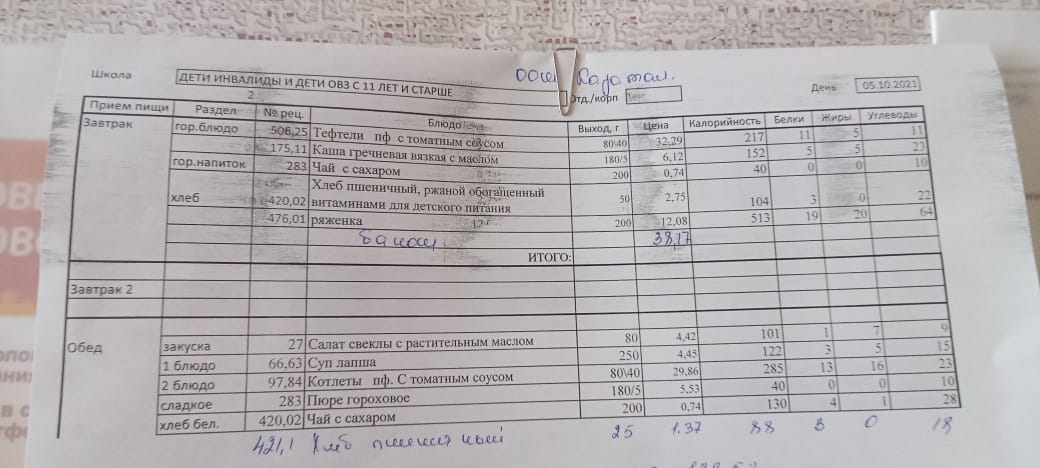 Школа ДЕТИ ИНВАЛИДЫ И ДЕТИ ОВЗ С 11 ЛЕТ И СТАРШЕ Отд./корп День 05.10.2021
2
Прием пищи Раздел № рец. Блюдо Выход, г Цена Калорийность Белки Жиры Углеводы
Завтрак гор.блюдо 506,25 Тефтели пф с томатным соусом 80\40 32,29 217 11 5 11
175,11 Каша гречневая вязкая с маслом 180/5 6,12 152 5 5 23
гор.напиток 283 Чай с сахаром 200 0,74 40 0 0 10
хлеб 420,02 Хлеб пшеничный, ржаной обогащенный витаминами для детского питания 50 2,75 104 3 0 22
476,01 ряженка 200 12,08 513 19 20 64
38,17
ИТОГО:
Завтрак 2
Обед закуска 27 Салат свеклы с растительным маслом 80 4,42 101 1 7 9
1 блюдо 66,63 Суп лапша 250 4,45 122 3 5 15
2 блюдо 97,84 Котлеты пф. С томатным соусом 80\40 29,86 285 13 16 23
сладкое 283 Пюре гороховое 180/5 5,53 40 0 0 10
хлеб бел. 420,02 Чай с сахаром 200 0,74 130 4 1 28
421,1 Хлеб пшеничный 25 1.37 88 3 0 18